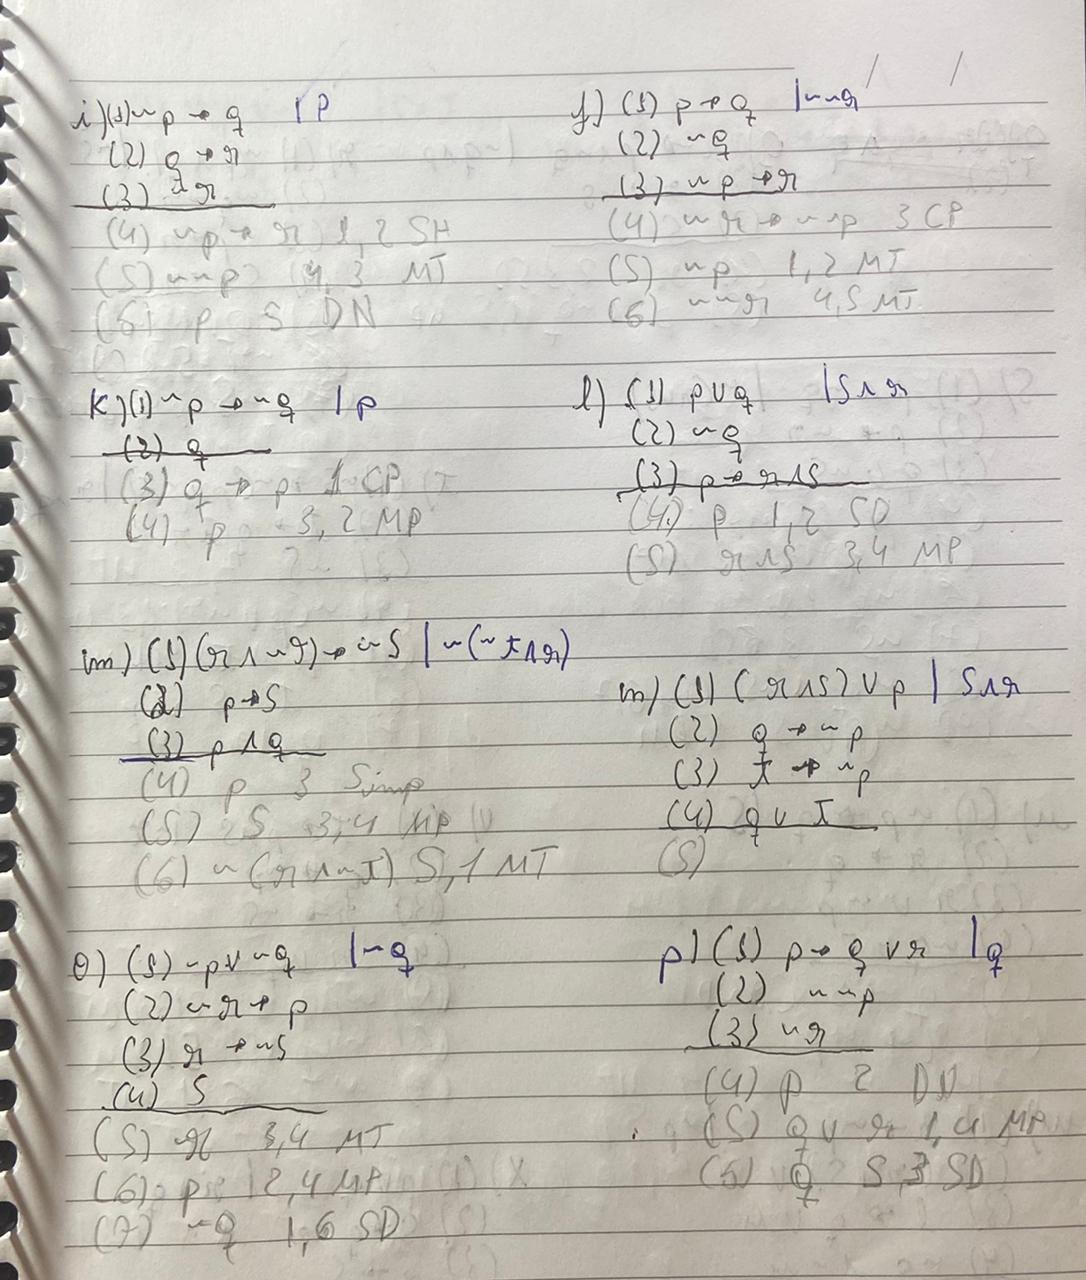 / /
i)(1) ~p → q | p
(2) q → r
(3) ~r
(4) ~p → r 1, 2 SH
(5) ~~p 4, 3 MT
(6) p 5 DN
j) (1) p → q | ~~r
(2) ~q
(3) ~p → r
(4) ~r → ~~p 3 CP
(5) ~p 1, 2 MT
(6) ~~r 4,5 MT
k)(1) ~p → ~q | p
(2) q
(3) q → p 1 CP
(4) p 3, 2 MP
l) (1) p ∨ q | s ∧ r
(2) ~q
(3) p → r ∧ s
(4) p 1, 2 SD
(5) r ∧ s 3,4 MP
m) (1) (r ∧ ~t) → ~s | ~(~t ∧ r)
(2) p → s
(3) p ∧ q
(4) p 3 Simp
(5) s 3,4 MP
(6) ~(r ∧ ~t) 5, 1 MT
n) (1) (r ∧ s) ∨ p | s ∧ r
(2) q → ~p
(3) t → ~p
(4) q ∨ t
(5)
o) (1) ~p ∨ ~q | ~q
(2) ~r → p
(3) r → ~s
(4) s
(5) ~r 3,4 MT
(6) p 2,4 MP
(7) ~q 1,6 SD
p) (1) p → q ∨ r | q
(2) ~~p
(3) ~r
(4) p 2 DN
(5) q ∨ r 1, 4 MP
(6) q 5, 3 SD